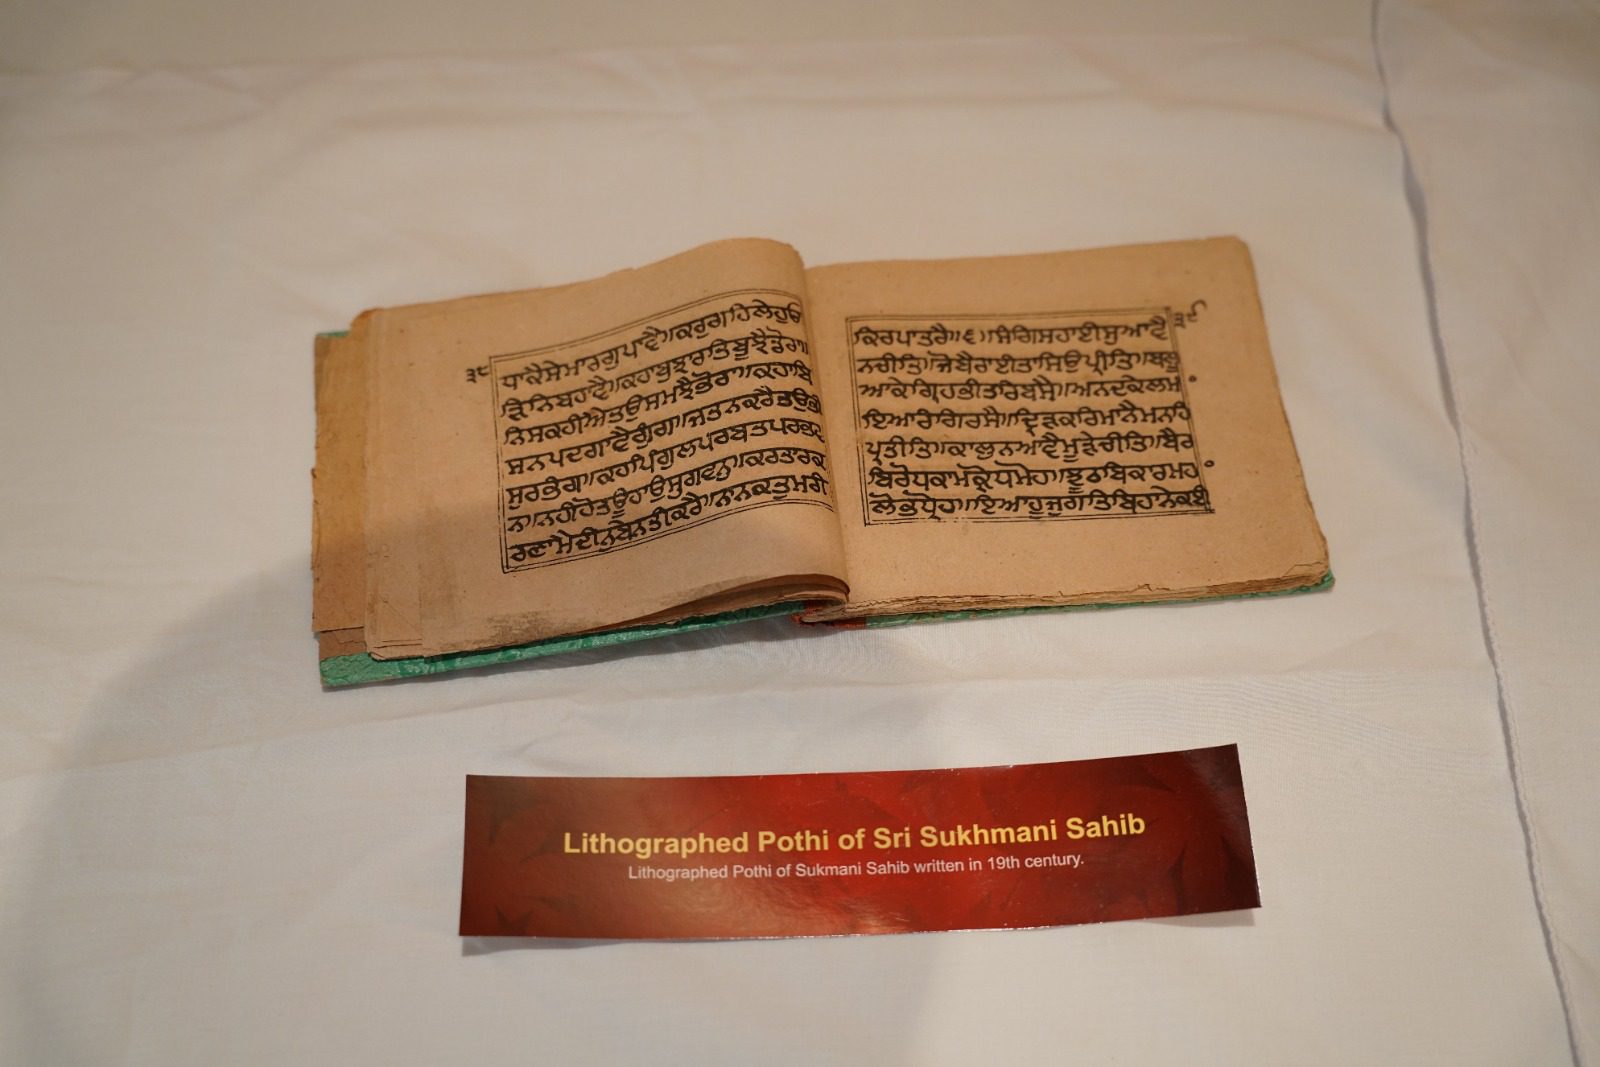 ੩੮
ਧਾਕੈਸੇਮਾਰਗੁਪਾਵੈ॥ਕਰੁਗਹਿਲੇਹੁਓ
ੜਿਨਿਬਹਾਵੈ॥ਕਹਾਬੁਝਾਰਤਿਬੂਝੈਡੋਰਾ॥
ਨਿਸਕਹੀਐਤਉਸਮਝੈਭੋਰਾ॥ਕਹਾਬਿ
ਸਨਪਦਗਾਵੈਗੁੰਗ॥ਜਤਨਕਰੈਤਉਭੀ
ਸੁਰਭੰਗ॥ਕਹਪਿੰਗੁਲਪਰਬਤਪਰਭਵ
ਨ॥ਨਹੀਹੋਤਊਹਾਉਸੁਗਵਨੁ॥ਕਰਤਾਰਕ
ਰੁਣਾਮੈਦੀਨੁਬੇਨਤੀਕਰੈ॥ਨਾਨਕਤੁਮਰੀ
੩੯
ਕਿਰਪਾਤਰੈ॥੬॥ਸੰਗਿਸਹਾਈਸੁਆਵੈ
ਨਚੀਤਿ॥ਜੋਬੈਰਾਈਤਾਸਿਉਪ੍ਰੀਤਿ॥ਬਲੂ
ਆਕੇਗ੍ਰਿਹਭੀਤਰਿਬਸੈ॥ਅਨਦਕੇਲਮਾ
ਇਆਰੰਗਿਰਸੈ॥ਦ੍ਰਿੜੁਕਰਿਮਾਨੈਮਨਹਿ
ਪ੍ਰਤੀਤਿ॥ਕਾਲੁਨਆਵੈਮੂੜੇਚੀਤਿ॥ਬੈਰ
ਬਿਰੋਧਕਾਮਕ੍ਰੋਧਮੋਹ॥ਝੂਠਬਿਕਾਰਮਹਾ
ਲੋਭਧ੍ਰੋਹ॥ਇਆਹੂਜੁਗਤਿਬਿਹਾਨੇਕਈ
Lithographed Pothi of Sri Sukhmani Sahib
Lithographed Pothi of Sukmani Sahib written in 19th century.